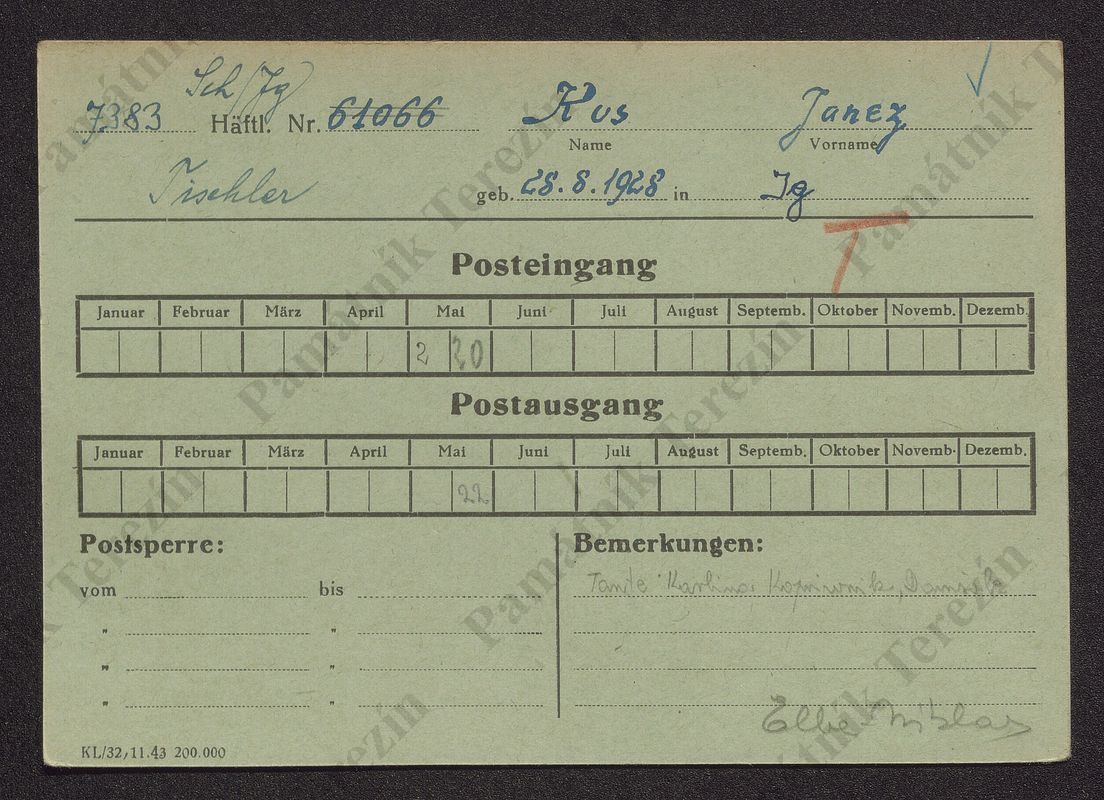 Sch/Jg
7383 Häftl. Nr. 61066 Kus Janez
Name Vorname
Tischler geb. 28.8.1928 in Jg
Posteingang
Januar Februar März April Mai Juni Juli August Septemb. Oktober Novemb. Dezemb.
2 20
Postausgang
Januar Februar März April Mai Juni Juli August Septemb. Oktober Novemb. Dezemb.
22
Postsperre: Bemerkungen:
vom bis Tante Karlina
" "
" "
" "
KL/32, 11.43 200.000
Památník Terezín